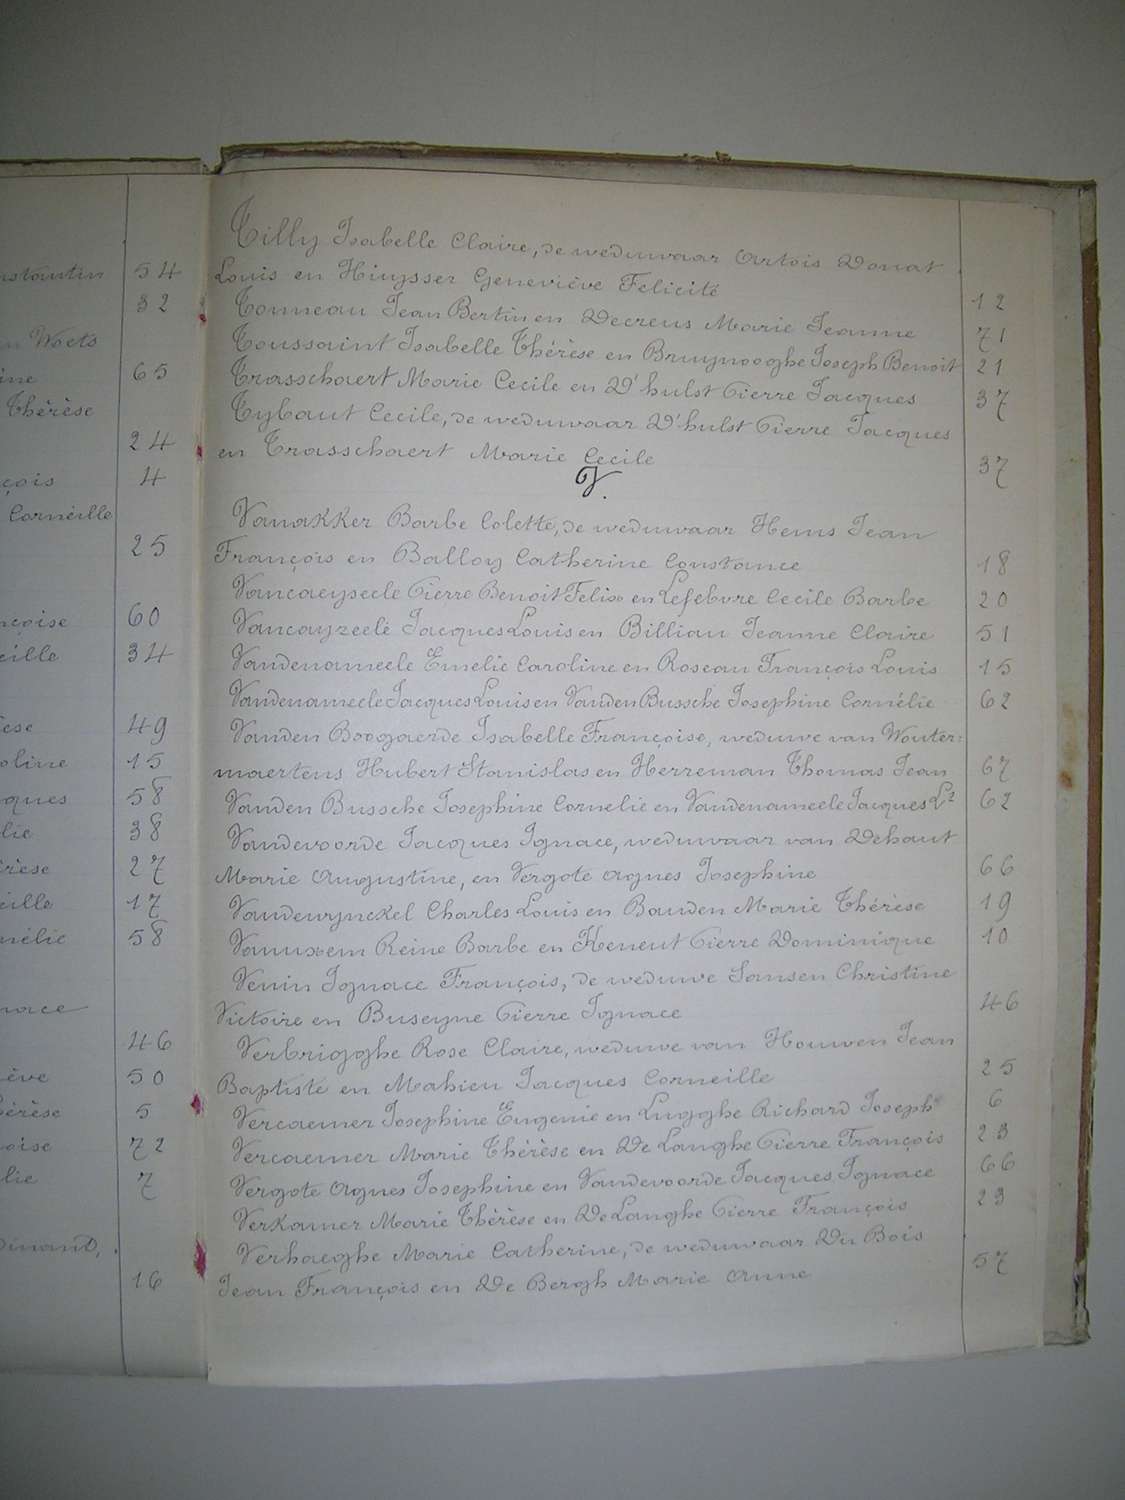 nstantin 54
32
n Woets
ine 65
Thérèse
24
çois 4
Corneille
25
nçoise 60
eille 34
èse 49
oline 15
ques 58
lie 38
érèse 27
eille 17
nélie 58
nace
46
iève 50
hérèse 5
oise 72
lie 7
dinand,
16
Tilly Isabelle Claire, de weduwaar Artois Donat
Louis en Hiuysser Geneviève Felicité 12
Tonneau Jean Bertin en Decreus Marie Jeanne 71
Toussaint Isabelle Thérèse en Bruynooghe Joseph Benoit 21
Trasschaert Marie Cecile en D'hulst Pierre Jacques 37
Tybaut Cecile, de weduwaar D'hulst Pierre Jacques
en Trasschaert Marie Cecile 37
V.
Vanakker Barbe Colette, de weduwaar Hems Jean
François en Balloy Catherine Constance 18
Vancaeyseele Pierre Benoit Felix en Lefebvre Cecile Barbe 20
Vancayzeele Jacques Louis en Billiau Jeanne Claire 51
Vandenameele Emelie Caroline en Roseau François Louis 15
Vandenameele Jacques Louis en Vanden Bussche Josephine Cornélie 62
Vanden Boogaerde Isabelle Françoise, weduwe van Wouter=
maertens Hubert Stanislas en Herreman Thomas Jean 67
Vanden Bussche Josephine Cornelie en Vandenameele Jacques Ls 62
Vandevoorde Jacques Ignace, weduwaar van Dehaut
Marie Augustine, en Vergote Agnes Josephine 66
Vandewynckel Charles Louis en Bauden Marie Thérèse 19
Vanuxem Reine Barbe en Keneut Pierre Dominique 10
Venin Ignace François, de weduwe Jansen Christine
Victoire en Buseyne Pierre Ignace 46
Verbrigghe Rose Claire, weduwe van Houwen Jean
Baptiste en Mahieu Jacques Corneille 25
Vercaemer Josephine Eugenie en Lugghe Richard Joseph 6
Vercaemer Marie Thérèse en De Langhe Pierre François 23
Vergote Agnes Josephine en Vandevoorde Jacques Ignace 66
Verkamer Marie Thérèse en De Langhe Pierre François 23
Verhaeghe Marie Catherine, de weduwaar Du Bois
Jean François en De Bergh Marie Anne 57